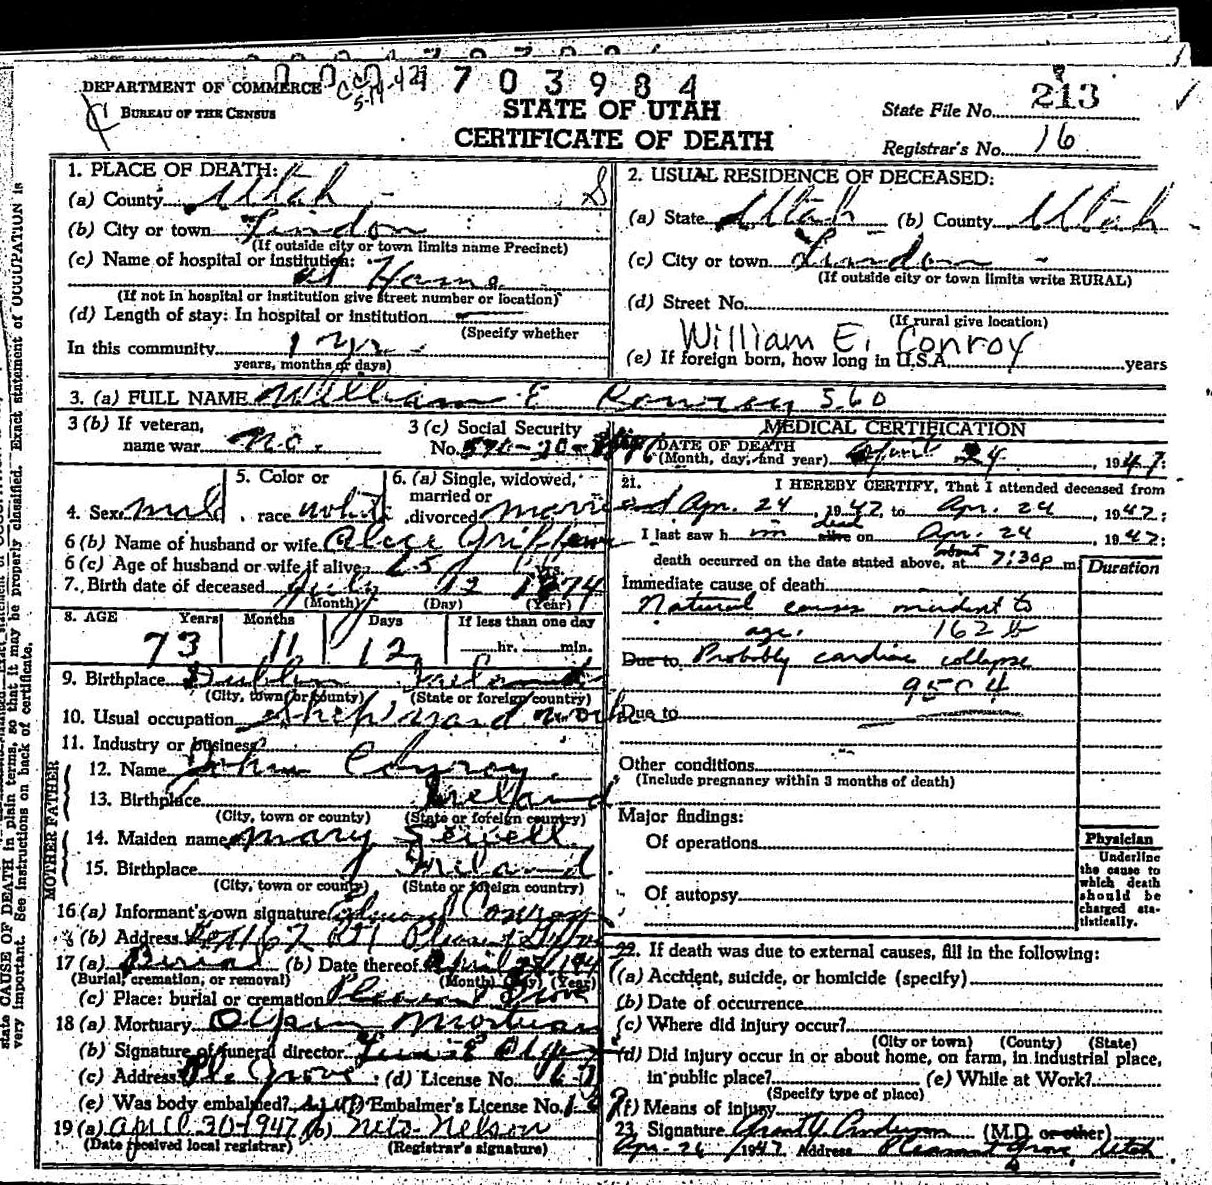 DEPARTMENT OF COMMERCE
BUREAU OF THE CENSUS
703984
STATE OF UTAH
CERTIFICATE OF DEATH
State File No. 213
Registrar's No. 16
1. PLACE OF DEATH:
(a) County Utah
(b) City or town Lindon
(If outside city or town limits name Precinct)
(c) Name of hospital or institution:
at Home
(If not in hospital or institution give street number or location)
(d) Length of stay: In hospital or institution
(Specify whether
In this community 1 yr
years, months or days)
2. USUAL RESIDENCE OF DECEASED:
(a) State Utah (b) County Utah
(c) City or town Lindon
(If outside city or town limits write RURAL)
(d) Street No.
(If rural give location)
William E. Conroy
(e) If foreign born, how long in U.S.A. years
3. (a) FULL NAME William E Conroy 560
3 (b) If veteran,
name war no.
3 (c) Social Security
No.
4. Sex male
5. Color or
race white
6. (a) Single, widowed,
married or
divorced married
6 (b) Name of husband or wife
6 (c) Age of husband or wife if alive 65 yrs.
7. Birth date of deceased July 12 1874
(Month) (Day) (Year)
8. AGE Years Months Days If less than one day
73 11 12 hr. min.
9. Birthplace Dublin Ireland
(City, town or county) (State or foreign country)
10. Usual occupation Ship Yard work
11. Industry or business?
FATHER
12. Name John Conroy
13. Birthplace Ireland
(City, town or county) (State or foreign country)
MOTHER
14. Maiden name Mary Sewell
15. Birthplace Ireland
(City, town or county) (State or foreign country)
16 (a) Informant's own signature Conroy
(b) Address Box 167 Rt 1 Pleasant Grove
17 (a) Burial (b) Date thereof April 1947
(Burial, cremation, or removal) (Month) (Day) (Year)
(c) Place: burial or cremation Pleasant Grove
18 (a) Mortuary Olpin Mortuary
(b) Signature of funeral director Olpin
(c) Address Pl. Grove (d) License No.
(e) Was body embalmed? (f) Embalmer's License No.
19 (a) April 30-1947 (b) Neta Nelson
(Date received local registrar) (Registrar's signature)
MEDICAL CERTIFICATION
DATE OF DEATH
(Month, day, and year) April 24, 1947:
21. I HEREBY CERTIFY, That I attended deceased from
Apr. 24, 1947, to Apr. 24, 1947;
I last saw him dead alive on Apr. 24, 1947;
death occurred on the date stated above, at about 7:30p m.
Duration
Immediate cause of death
Natural causes incident to
age. 162 b
Due to Probably cardiac collapse
9504
Due to
Other conditions
(Include pregnancy within 3 months of death)
Major findings:
Of operations
Of autopsy
Physician
Underline
the cause to
which death
should be
charged sta-
tistically.
22. If death was due to external causes, fill in the following:
(a) Accident, suicide, or homicide (specify)
(b) Date of occurrence
(c) Where did injury occur?
(City or town) (County) (State)
(d) Did injury occur in or about home, on farm, in industrial place,
in public place? (e) While at Work?
(Specify type of place)
(f) Means of injury
23. Signature Grant Y. Anderson (M.D. or other)
Apr. 26, 1947 Address Pleasant Grove, Utah
state CAUSE OF DEATH in plain terms, so that it may be properly classified. Exact statement of OCCUPATION is
very important. See instructions on back of certificate.